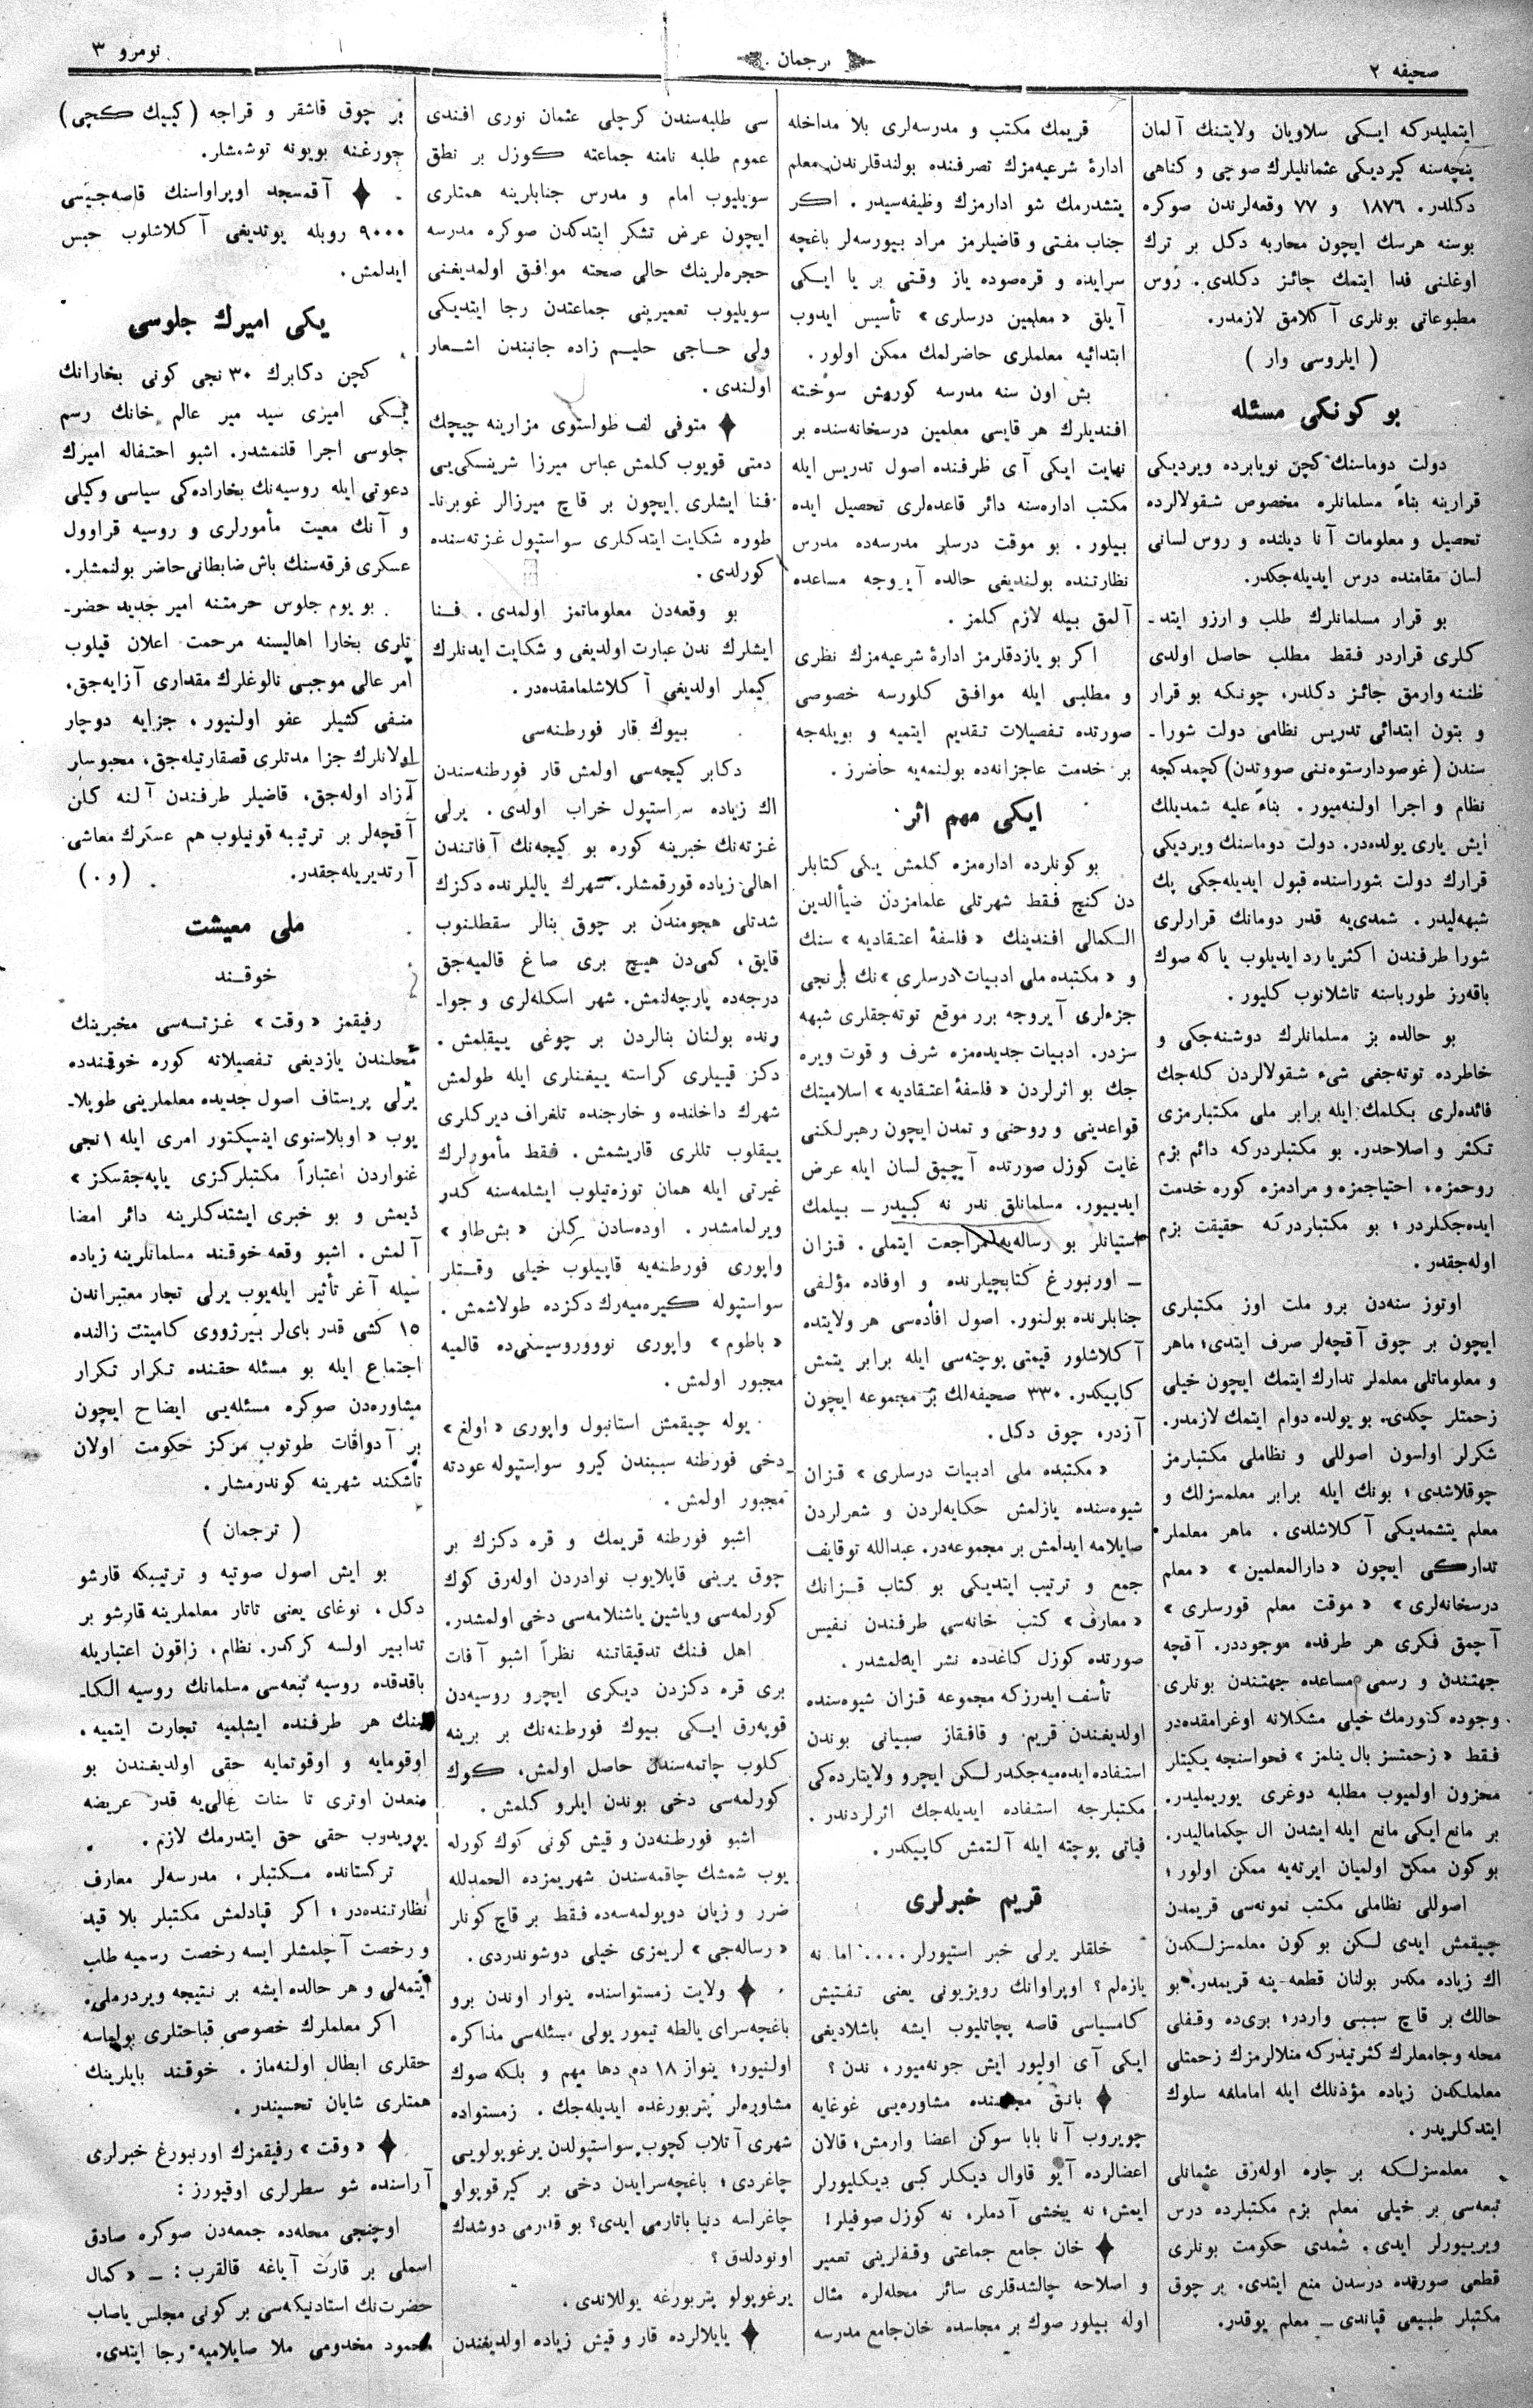 صحیفه ٢
ترجمان
نومرو ٣
ایتملیدركه ایكی سلاویان ولایتنك آلمان
پنچه‌سنه كیردیكی عثمانلیلرك صوچی و كناهی
دكلدر. ١٨٧٦ و ٧٧ وقعه‌لرندن صوكره
بوسنه هرسك ایچون محاربه دكل بر ترك
اوغلنی فدا ایتمك جائز دكلدی. روس
مطبوعاتی بونلری آكلامق لازمدر.
( ایلروسی وار )
بو كونكی مسئله
دولت دوماسنك كچن نویابرده ویردیكی
قرارینه بناءً مسلمانلره مخصوص شقولالرده
تحصیل و معلومات آنا دیلنده و روس لسانی
لسان مقامنده درس ایدیله‌جكدر.
بو قرار مسلمانلرك طلب و ارزو ایتد ـ
كلری قراردر فقط مطلب حاصل اولدی
ظننه وارمق جائز دكلدر، چونكه بو قرار
و بتون ابتدائی تدریس نظامی دولت شورا ـ
سندن ( غوصودارستوه‌ننی صووتدن) كچمدكجه
نظام و اجرا اولنه‌میور. بناءً علیه شمدیلك
ایش یاری یولده‌در. دولت دوماسنك ویردیكی
قرارك دولت شوراسنده قبول ایدیله‌جكی پك
شبهه‌لیدر. شمدی‌یه قدر دومانك قرارلری
شورا طرفندن اكثریا رد ایدیلوب یا كه صوك
باقه‌رز طورباسنه تاشلانوب كلیور.
بو حالده بز مسلمانلرك دوشنه‌جكی و
خاطرده توته‌جغی شیء شقولالردن كله‌جك
فائده‌لری بكلمك ایله برابر ملی مكتبلرمزی
تكثر و اصلاحدر. بو مكتبلردركه دائم بزم
روحمزه، احتیاجمزه و مرادمزه كوره خدمت
ایده‌جكلردر؛ بو مكتبلردركه حقیقت بزم
اوله‌جقدر.
اوتوز سنه‌دن برو ملت اوز مكتبلری
ایچون بر چوق آقچه‌لر صرف ایتدی؛ ماهر
و معلوماتلی معلملر تدارك ایتمك ایچون خیلی
زحمتلر چكدی. بو یولده دوام ایتمك لازمدر.
شكرلر اولسون اصوللی و نظاملی مكتبلرمز
چوقلاشدی؛ بونك ایله برابر معلمسزلك و
معلم یتشمدیكی آكلاشلدی. ماهر معلملر
تداركی ایچون « دارالمعلمین » « معلم
درسخانه‌لری » « موقت معلم قورسلری »
آچمق فكری هر طرفده موجوددر. آقچه
جهتندن و رسمی مساعده جهتندن بونلری
وجوده كتورمك خیلی مشكلاته اوغرامقده‌در
فقط « زحمتسز بال ینلمز » فحواسنجه یكیتلر
محزون اولمیوب مطلبه دوغری یوریملیدر.
بر مانع ایكی مانع ایله ایشدن ال چكمامالیدر.
بو كون ممكن اولمیان ایرته‌یه ممكن اولور؛
اصوللی نظاملی مكتب نمونه‌سی قریمدن
چیقمش ایدی لكن بو كون معلمسزلكدن
اك زیاده مكدر بولنان قطعه ینه قریمدر. بو
حالك بر قاچ سببی واردر؛ بری‌ده وقفلی
محله و جامعلرك كثرتیدركه منلالرمزك زحمتلی
معلملكدن زیاده مؤذنلك ایله امامله سلوك
ایتدكلریدر.
معلمسزلكه بر چاره اوله‌رق عثمانلی
تبعه‌سی بر خیلی معلم بزم مكتبلرده درس
ویرییورلر ایدی. شمدی حكومت بونلری
قطعی صورتده درسدن منع ایتدی. بر چوق
مكتبلر طبیعی قپاندی ـ معلم یوقدر.
قریمك مكتب و مدرسه‌لری بلا مداخله
ادارۀ شرعیه‌مزك تصرفنده بولندقلرندن معلم
یتشدرمك شو ادارمزك وظیفه‌سیدر. اكر
جناب مفتی و قاضیلرمز مراد بیورسه‌لر باغچه
سرایده و قره‌صوده یاز وقتی بر یا ایكی
آیلق « معلمین درسلری » تأسیس ایدوب
ابتدائیه معلملری حاضرلمك ممكن اولور.
بش اون سنه مدرسه كورمش سوخته
افندیلرك هر قایسی معلمین درسخانه‌سنده بر
نهایت ایكی آی ظرفنده اصول تدریس ایله
مكتب اداره‌سنه دائر قاعده‌لری تحصیل ایده
بیلور. بو موقت درسلر مدرسه‌ده مدرس
نظارتنده بولندیغی حالده آیروجه مساعده
آلمق بیله لازم كلمز.
اكر بو یازدقلرمز ادارۀ شرعیه‌مزك نظری
و مطلبی ایله موافق كلورسه خصوصی
صورتده تفصیلات تقدیم ایتمیه و بویله‌جه
بر خدمت عاجزانه‌ده بولنمه‌یه حاضرز.
ایكی مهم اثر
بو كونلرده اداره‌مزه كلمش یكی كتابلر
دن كنج فقط شهرتلی علمامزدن ضیأالدین
الكمالی افندینك « فلسفۀ اعتقادیه » سنك
و « مكتبده ملی ادبیات درسلری » نك برنجی
جزءلری آیروجه برر موقع توته‌جقلری شبهه
سزدر. ادبیات جدیده‌مزه شرف و قوت ویره
جك بو اثرلردن « فلسفۀ اعتقادیه » اسلامیتك
قواعدینی و روحنی و تمدن ایچون رهبرلكنی
غایت كوزل صورتده آچیق لسان ایله عرض
ایدییور. مسلمانلق ندر نه كبیدر ـ بیلمك
استیانلر بو رساله‌یه مراجعت ایتملی. قزان
ـ اورنبورغ كتابچیلرنده و اوفاده مؤلفی
جنابلرنده بولنور. اصول افاده‌سی هر ولایتده
آكلاشلور قیمتی پوچته‌سی ایله برابر یتمش
كاپیكدر. ٣٣٠ صحیفه‌لك بر مجموعه ایچون
آزدر، چوق دكل.
« مكتبده ملی ادبیات درسلری » قزان
شیوه‌سنده یازلمش حكایه‌لردن و شعرلردن
صایلامه ایدلمش بر مجموعه‌در. عبدالله توقایف
جمع و ترتیب ایتدیكی بو كتاب قزانك
« معارف » كتب خانه‌سی طرفندن نفیس
صورتده كوزل كاغدده نشر ایدلمشدر.
تأسف ایدرزكه مجموعه قزان شیوه‌سنده
اولدیغندن قریم و قافقاز صبیانی بوندن
استفاده ایده‌میه‌جكدر لكن ایچرو ولایتلرده‌كی
مكتبلرجه استفاده ایدیله‌جك اثرلردندر.
فیاتی پوچته ایله آلتمش كاپیكدر.
قریم خبرلری
خلقلر یرلی خبر استیورلر .... اما نه
یازه‌لم ؟ اوپراوانك رویزیونی یعنی تفتیش
كامسیاسی قاصه پچاتلیوب ایشه باشلادیغی
ایكی آی اولیور ایش جونه‌میور، ندن ؟
بانق مجلسنده مشاوره‌یی غوغایه
چویروب آنا بابا سوكن اعضا وارمش؛ قالان
اعضالرده آیو قاوال دیكلر كبی دیكلیورلر
ایمش؛ نه یخشی آدملر، نه كوزل صوفیلر!
خان جامع جماعتی وقفلرینی تعمیر
و اصلاحه چالشدقلری سائر محله‌لره مثال
اوله بیلور صوك بر مجلسده خان جامع مدرسه
سی طلبه‌سندن كرچلی عثمان نوری افندی
عموم طلبه نامنه جماعته كوزل بر نطق
سویلیوب امام و مدرس جنابلرینه همتلری
ایچون عرض تشكر ایتدكدن صوكره مدرسه
حجره‌لرینك حالی صحته موافق اولمدیغنی
سویلیوب تعمیرینی جماعتدن رجا ایتدیكی
ولی حاجی حلیم زاده جانبندن اشعار
اولندی.
متوفی لف طولستوی مزارینه چیچك
دمتی قویوب كلمش عباس میرزا شرینسكی‌یی
فنا ایشلری ایچون بر قاچ میرزالر غوبرناـ
طوره شكایت ایتدكلری سواستپول غزته‌سنده
كورلدی.
بو وقعه‌دن معلوماتمز اولمدی. فنا
ایشلرك ندن عبارت اولدیغی و شكایت ایدنلرك
كیملر اولدیغی آكلاشلمامقده‌در.
بیوك قار فورطنه‌سی
دكابر كیچه‌سی اولمش قار فورطنه‌سندن
اك زیاده سواستپول خراب اولدی. یرلی
غزته‌نك خبرینه كوره بو كیچه‌نك آفاتندن
اهالی زیاده قورقمشلر. شهرك یالیلرنده دكزك
شدتلی هجومندن بر چوق بنالر سقطلنوب
قایق، كمی‌دن هیچ بری صاغ قالمیه‌جق
درجه‌ده پارچه‌لنمش. شهر اسكله‌لری و جواـ
رنده بولنان بنالردن بر چوغی ییقلمش.
دكز قیییلری كراسته ییغنلری ایله طولمش
شهرك داخلنده و خارجنده تلغراف دیركلری
ییقلوب تللری قاریشمش. فقط مأمورلرك
غیرتی ایله همان توزه‌تیلوب ایشلمه‌سنه كدر
ویرلمامشدر. اوده‌سادن كلن « بش‌طاو »
واپوری فورطنه‌یه قاپیلوب خیلی وقتلر
سواستپوله كیره‌میه‌رك دكزده طولاشمش.
« باطوم » واپوری نوووروسیسقی‌ده قالمیه
مجبور اولمش.
یوله چیقمش استانبول واپوری « اولغ »
دخی فورطنه سببندن كیرو سواستپوله عودته
مجبور اولمش.
اشبو فورطنه قریمك و قره دكزك بر
چوق یرینی قاپلایوب نوادردن اوله‌رق كوك
كورلمه‌سی و یاشین یاشنلامه‌سی دخی اولمشدر.
اهل فنك تدقیقاتنه نظراً اشبو آفات
بری قره دكزدن دیكری ایچرو روسیه‌دن
قوپه‌رق ایكی بیوك فورطنه‌نك بر برینه
كلوب چاتمه‌سندن حاصل اولمش، كوك
كورلمه‌سی دخی بوندن ایلرو كلمش.
اشبو فورطنه‌دن و قیش كونی كوك كورله
یوب شمشك چاقمه‌سندن شهریمزده الحمدلله
ضرر و زیان دویولمه‌سه‌ده فقط بر قاچ كونلر
« رساله‌جی » لریمزی خیلی دوشوندردی.
ولایت زمستواسنده ینوار اوندن برو
باغچه‌سرای یالطه تیمور یولی مسئله‌سی مذاكره
اولنیور؛ ینوار ١٨ ده دها مهم و بلكه صوك
مشاوره‌لر پتربورغده ایدیله‌جك. زمستواده
شهری آتلاب كچوب سواستپولدن یرغوپولویی
چاغردی؛ باغچه‌سرایدن دخی بر كیرقوپولو
چاغرلسه دنیا باتارمی ایدی؟ بو قدرمی دوشدك
اونودلدق ؟
یرغوپولو پتربورغه یوللاندی.
یایلالرده قار و قیش زیاده اولدیغندن
بر چوق قاشقر و قراجه ( كییك كچی )
چورغنه بویونه توشمشلر.
آقمسجد اوپراواسنك قاصه‌جیسی
٩٠٠٠ روبله یوتدیغی آكلاشلوب حبس
ایدلمش.
یكی امیرك جلوسی
كچن دكابرك ٣٠ نجی كونی بخارانك
یكی امیری سید میر عالم خانك رسم
جلوسی اجرا قلنمشدر. اشبو احتفاله امیرك
دعوتی ایله روسیه‌نك بخاراده‌كی سیاسی وكیلی
و آنك معیت مأمورلری و روسیه قراوول
عسكری فرقه‌سنك باش ضابطانی حاضر بولنمشلر.
بو یوم جلوس حرمتنه امیر جدید حضرـ
تلری بخارا اهالیسنه مرحمت اعلان قیلوب
امر عالی موجبی نالوغلرك مقداری آزایه‌جق،
منفی كشیلر عفو اولنیور، جزایه دوچار
اولانلرك جزا مدتلری قصقارتیله‌جق، محبوسلر
آزاد اوله‌جق، قاضیلر طرفندن آلنه كلن
آقچه‌لر بر ترتیبه قونیلوب هم عسكرك معاشی
آرتدیریله‌جقدر. ( و. )
ملی معیشت
خوقند
رفیقمز « وقت » غزته‌سی مخبرینك
محلندن یازدیغی تفصیلاته كوره خوقندده
یرلی پریستاف اصول جدیده معلملرینی طوپلاـ
یوب « اوبلاستنوی اینسپكتور امری ایله ١ نجی
غنواردن اعتباراً مكتبلركزی یاپه‌جقسكز »
دیمش و بو خبری ایشتدكلرینه دائر امضا
آلمش. اشبو وقعه خوقند مسلمانلرینه زیاده
سیله آغر تأثیر ایله‌یوب یرلی تجار معتبراندن
١٥ كشی قدر بای‌لر بیرژووی كامیتت زالنده
اجتماع ایله بو مسئله حقنده تكرار تكرار
مشاوره‌دن صوكره مسئله‌یی ایضاح ایچون
بر آدواقات طوتوب مركز حكومت اولان
تاشكند شهرینه كوندرمشلر.
( ترجمان )
بو ایش اصول صوتیه و ترتیبكه قارشو
دكل، نوغای یعنی تاتار معلملرینه قارشو بر
تدابیر اولسه كركدر. نظام، زاقون اعتباریله
باقدقده روسیه تبعه‌سی مسلمانك روسیه الكاـ
سنك هر طرفنده ایشلمیه تجارت ایتمیه،
اوقومایه و اوقوتمایه حقی اولدیغندن بو
منعدن اوتری تا سنات عالی‌یه قدر عریضه
یوریدوب حقی حق ایتدرمك لازم.
تركستانده مكتبلر، مدرسه‌لر معارف
نظارتنده‌در؛ اكر قپادلمش مكتبلر بلا قید
و رخصت آچلمشلر ایسه رخصت رسمیه طلب
ایتمه‌لی و هر حالده ایشه بر نتیجه ویردرملی.
اكر معلملرك خصوصی قباحتلری بولماسه
حقلری ابطال اولنه‌ماز. خوقند بایلرینك
همتلری شایان تحسیندر.
« وقت » رفیقمزك اورنبورغ خبرلری
آراسنده شو سطرلری اوقیورز :
اوچنجی محله‌ده جمعه‌دن صوكره صادق
اسملی بر قارت آیاغه قالقرب : ـ « كمال
حضرت‌نك استادنیكه‌سی بر كونی مجلس یاصاب
محمود مخدومی ملا صایلامیه رجا ایتدی.